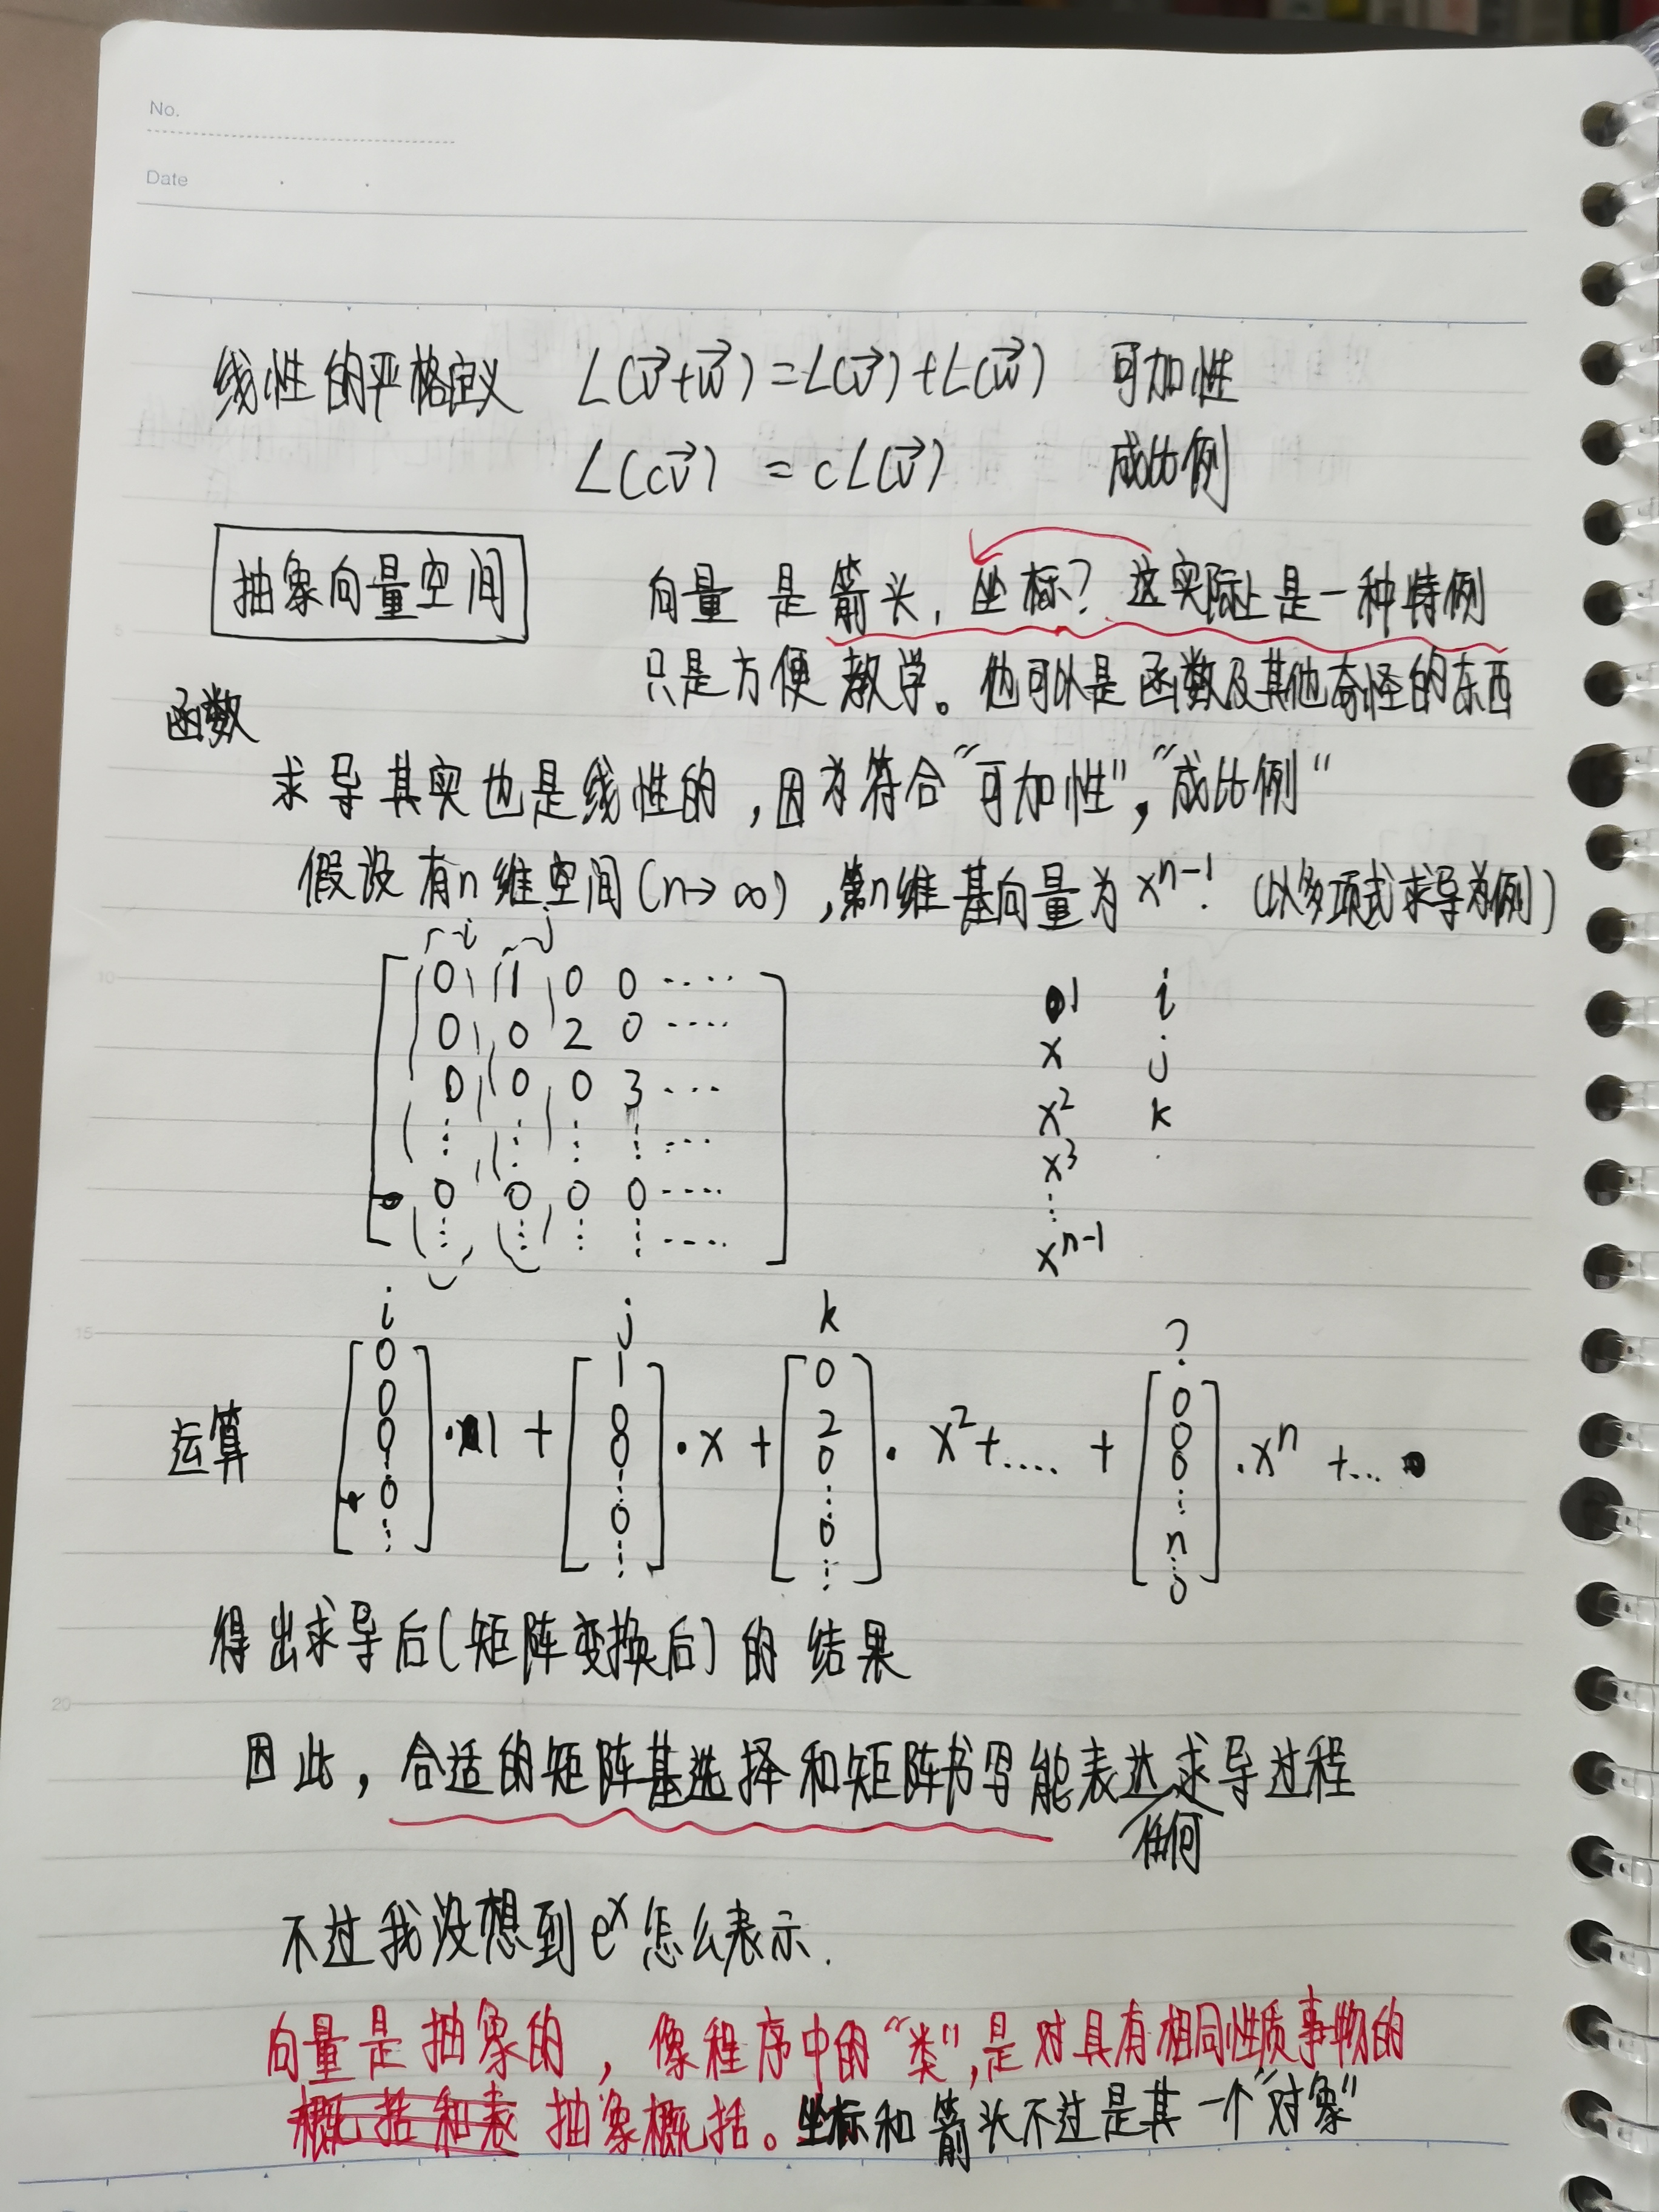 No.
Date
线性的严格定义 L(v⃗+w⃗)=L(v⃗)+L(w⃗) 可加性
L(cv⃗) = cL(v⃗) 成比例
抽象向量空间 向量是箭头,坐标?这实际上是一种特例
只是方便教学。他可以是函数及其他奇怪的东西
函数
求导其实也是线性的,因为符合"可加性","成比例"
假设有n维空间(n→∞),第n维基向量为xⁿ⁻¹ (以多项式求导为例)
i j
0 1 0 0 ····
0 0 2 0 ····
0 0 0 3 ···
⋮ ⋮ ⋮ ⋮ ···
0 0 0 0 ····
⋮ ⋮ ⋮ ⋮ ····
1 i
x j
x² k
x³ ·
⋮
xⁿ⁻¹
i j k ?
运算 [0 0 0 ⋮ 0 ⋮]·1 + [1 0 0 ⋮ 0 ⋮]·x + [0 2 0 ⋮ 0 ⋮]·x²+.... + [0 0 0 ⋮ n ⋮ 0]·xⁿ +...
得出求导后(矩阵变换后)的结果
因此,合适的矩阵基选择和矩阵书写能表达求导过程
任何
不过我没想到eˣ怎么表示.
向量是抽象的,像程序中的"类",是对具有相同性质事物的
概括和表 抽象概括。坐标和箭头不过是其一个"对象"
5
10
15
20